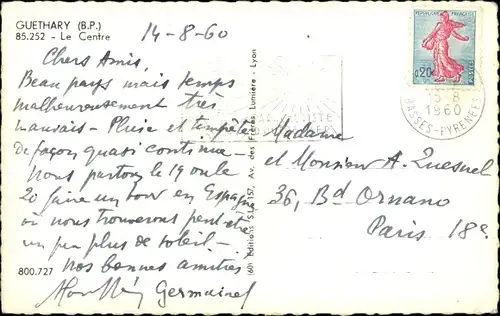 GUETHARY (B.P.)
85.252 - Le Centre
14-8-60
Chers Amis,
Beau pays mais temps
malheureusement très
mauvais - Pluie et tempêtes
de façon quasi continue -
Nous partons le 19 ou le
20 faire un tour en Espagne
où nous trouverons peut-être
un peu plus de soleil -
nos bonnes amitiés
Germaine
800.727
Editions S.L. 157, Av. des Frères Lumière - Lyon
REPUBLIQUE FRANÇAISE
0,20
POSTES
15-8
1960
BASSES-PYRENEES
Madame
et Monsieur A. Quesnel
36, Bd Ornano
Paris 18e